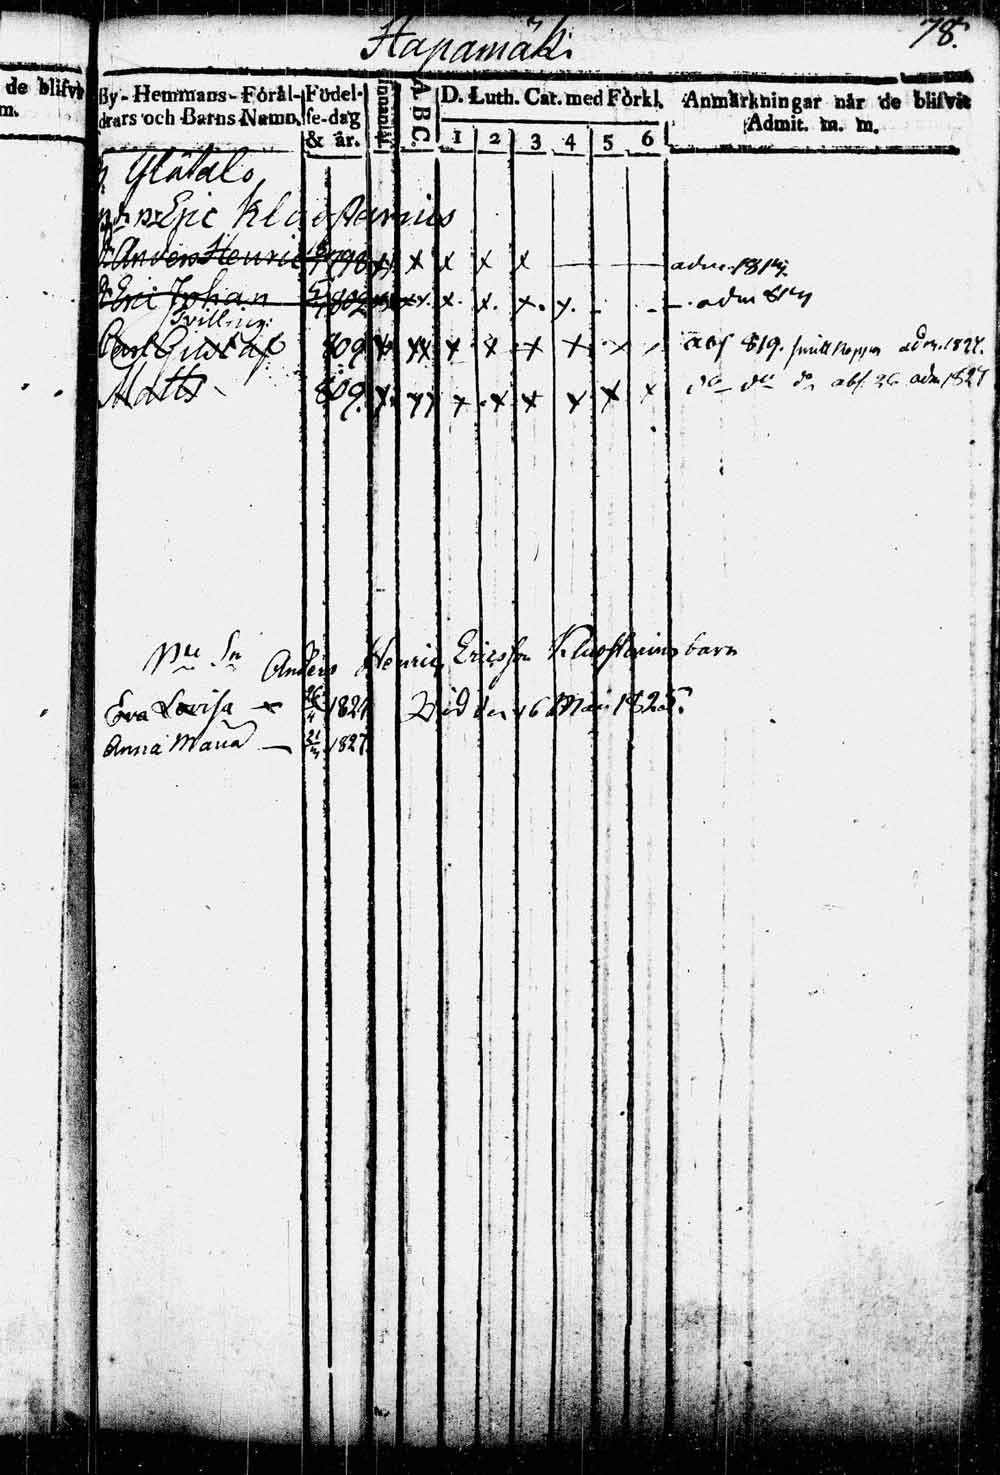 Hapamäki
78.
de blifvit
m.
By-Hemmans-Föräl-
drars och Barns Namn.
Födel-
se-dag
& år.
Innanläs.
A B C.
D. Luth. Cat. med Förkl.
1 2 3 4 5 6
Anmärkningar når de blifvit
Admit. m. m.
Ylätalo
Eric Klåsterinus
Anders Henric 1798 x x x x x adm. 1814.
Eric Johan 1802 x x x x. adm 817
Tvilling:
Carl Gustaf 809. x xx x x x x x abs 819. adm. 1827.
Matts 809. x xx x x x x x x do do do abs. 26 adm 1827
Anders Henric Ericsson Klosterinus barn
Eva Lovisa 26/4 1824 Död den 16 Maii 1825.
Anna Maria 21/3 1827.